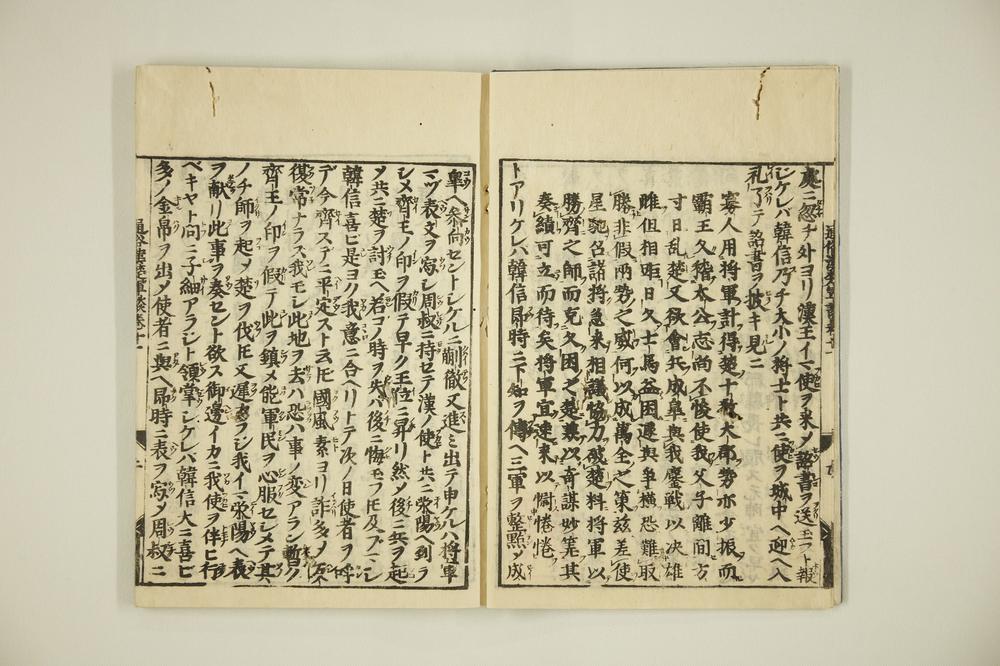 處ニ忽チ外ヨリ漢王イマ使ヲ来メ詔書ヲ送玉フト報
シケレバ韓信乃チ大小ノ将士ト共ニ使ヲ城中ヘ迎ヘ入
礼了テ詔書ヲ披キ見ニ
寡人用将軍計得楚十 大郡勢亦少振而
霸王久稽太公志尚不悛使我父子離間方
寸日乱楚又欲會兵成皐與我鏖戦以决雄
雌但相距日久士馬益困遽與争横恐難取
勝非假两勢之威何以成萬全之策兹差使
星馳召諸将急来相議協力破楚料将軍以
勝齊之師而克久困之楚 以奇謀妙筭其
奏績可立而待矣将軍宜速来以慰惓惓
トアリケレバ韓信即時ニ下知ヲ傳ヘ三軍ヲ整點メ成
皐ヘ参向セントシケルニ蒯徹又進ミ出テ申ケルハ将軍
マヅ表文ヲ寫シ周叔ニ持セテ漢ノ使ト共ニ滎陽ヘ到ラ
シメ齊王ノ印ヲ假テ早ク王位ニ昇リ然メ後ニ兵ヲ起
メ共ニ楚ヲ討玉ヘ若コノ時ヲ失ハ後ニ悔モフトモ及ブマジ
韓信喜ビ是ヨク我意ニ合ヘリトテ次ノ日使者ヲ停
デ今齊スデニ平定スト云トモ國風素ヨリ詐多メ
復常ナラス我モシ此地ヲ去ハ恐ハ事ノ変アラン暫ク
齊王ノ印ヲ假テ此ヲ鎮メ能軍民ヲ心服セシメテ其
ノチ師ヲ起メ楚ヲ伐トモ又遅カラジ我イマ滎陽ヘ表
ヲ献リ此事ヲ奏セント欲ス御邊イカニ我使ヲ伴ヒ行
ベキヤト向ニ子細アラジト領掌シケレバ韓信大ニ喜ビ
多ノ金帛ヲ出メ使者ニ與ヘ即時ニ表ヲ寫メ周叔ニ
通俗漢楚軍談巻十一